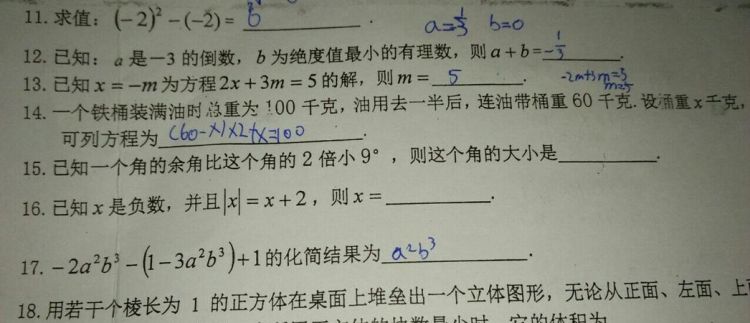 11. 求值：(−2)² −(−2)= 6 . a=⅓ b=0
12. 已知：a 是−3 的倒数，b 为绝度值最小的有理数，则 a+b= −⅓ .
13. 已知 x = −m 为方程 2x + 3m = 5 的解，则 m = 5 . -2m+3m=5
m=5
14. 一个铁桶装满油时总重为 100 千克，油用去一半后，连油带桶重 60 千克. 设桶重 x 千克，
可列方程为 (60-x)×2+x=100 .
15. 已知一个角的余角比这个角的 2 倍小 9°，则这个角的大小是 .
16. 已知 x 是负数，并且|x| = x + 2，则 x = .
17. −2a²b³ −(1−3a²b³)+1的化简结果为 a²b³ .
18. 用若干个棱长为 1 的正方体在桌面上堆垒出一个立体图形，无论从正面、左面、上